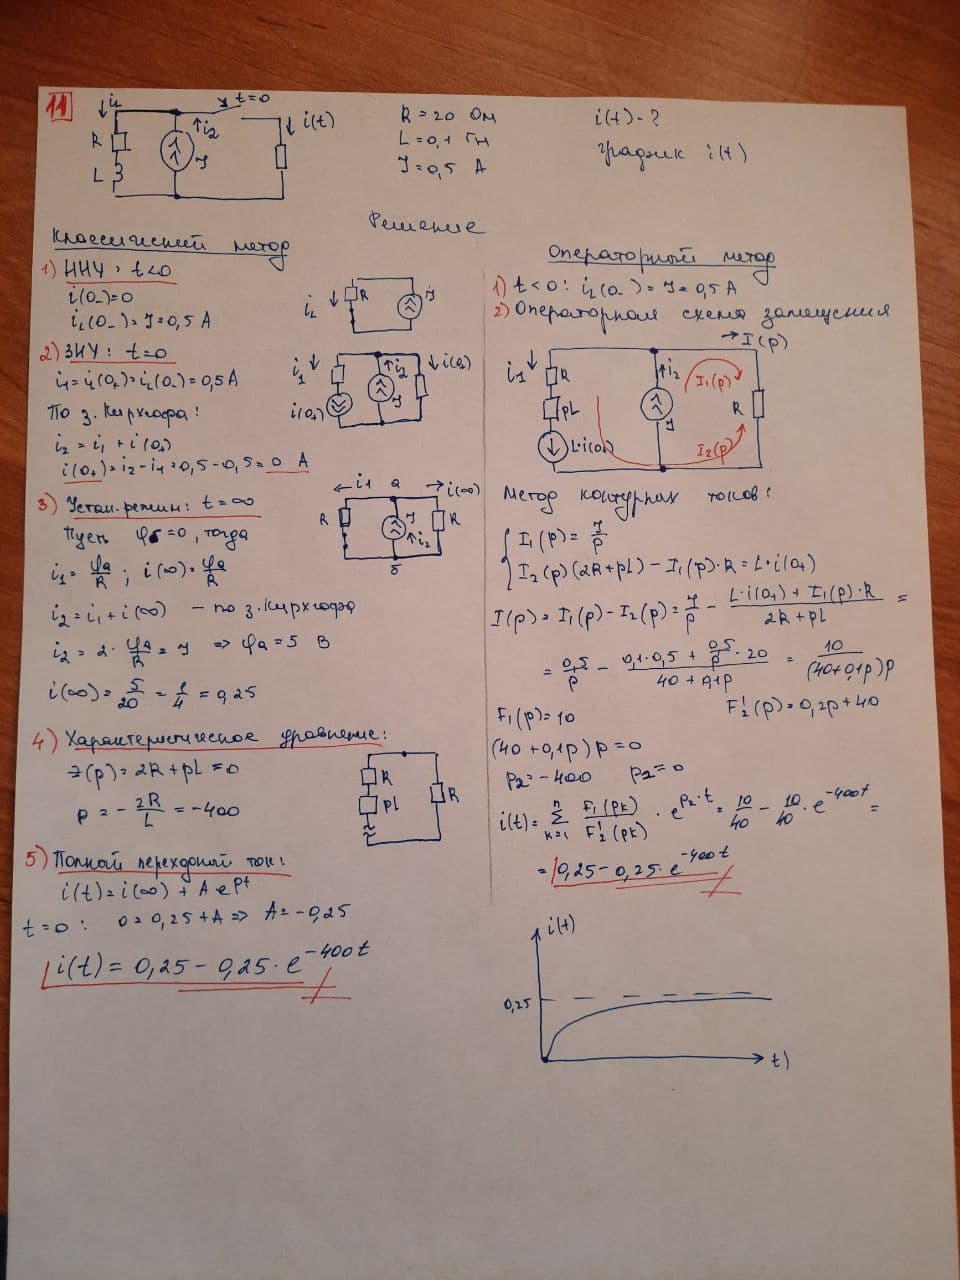 11
iL
t=0
i2
i(t)
R
J
L
R = 20 Ом
L = 0,1 Гн
J = 0,5 А
i(t) - ?
График i(t)
Решение
Классический метод
1) ННУ: t<0
i(0-)=0
iL(0-)=J=0,5 А
iL
R
J
2) ЗНУ: t=0
i1=i(0+)=iL(0-)=0,5А
По з. Кирхгофа:
i2 = i1 + i(0+)
i(0+)=i2-i1=0,5-0,5=0 А
i1
i2
i(0+)
J
i(0+)
3) Устан. режим: t=∞
Пусть φб=0, тогда
i1= φa/R ; i(∞)= φa/R
i2=i1+i(∞) - по з. Кирхгофа
i2 = 2· φa/R = J => φa=5 В
i(∞)= 5/20 = 1/4 = 0,25
i1
a
i(∞)
R
J
R
i2
б
4) Характеристическое уравнение:
Z(p)=2R+pL=0
p = - 2R/L = -400
R
pL
R
5) Полный переходный ток:
i(t)=i(∞) + A e^pt
t=0: 0=0,25+A => A=-0,25
i(t) = 0,25 - 0,25·e^-400t
Операторный метод
1) t<0: iL(0-)=J=0,5 А
2) Операторная схема замещения
I(p)
i1
R
i2
I1(p)
pL
J
R
L·i(0+)
I2(p)
Метод контурных токов:
I1(p)= J/p
I2(p)(2R+pL)-I1(p)·R=L·i(0+)
I(p)=I1(p)-I2(p)= J/p - (L·i(0+)+I1(p)·R)/(2R+pL) =
= 0,5/p - (0,1·0,5+ 0,5/p ·20)/(40+0,1p) = 10/((40+0,1p)p)
F1(p)=10
F2'(p)=0,2p+40
(40+0,1p)p=0
p2=-400 p2=0
i(t)= n Σ k=1 F1(pk)/F2'(pk) · e^pk·t = 10/40 - 10/40 · e^-400t =
= 0,25-0,25·e^-400t
i(t)
0,25
t)